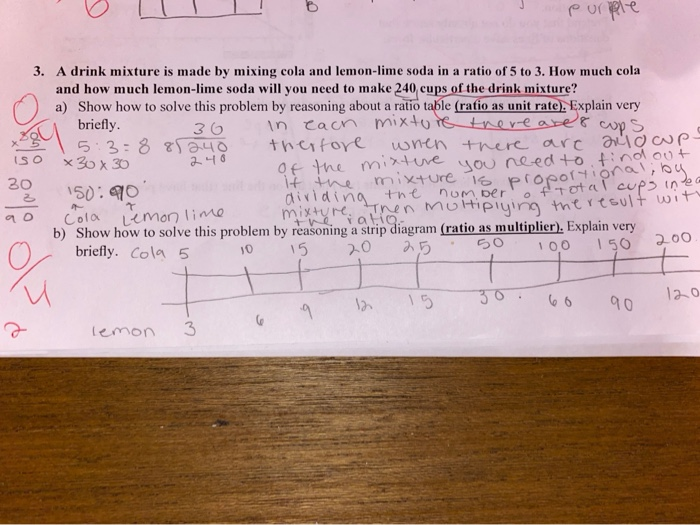 b
purple
3. A drink mixture is made by mixing cola and lemon-lime soda in a ratio of 5 to 3. How much cola
and how much lemon-lime soda will you need to make 240 cups of the drink mixture?
a) Show how to solve this problem by reasoning about a ratio table (ratio as unit rate). Explain very
briefly. 30 in each mixture there are 8 cups
0/4 30 x 5 150 5:3=8 8)240 therfore when there are 240 cups
x30 x30 240 of the mixture you need to find out
30 3 90 150:90 if the mixture is proportional, by
dividing the number of total cups in
Cola Lemon lime mixture, then multiplying the result wit
the ratio.
b) Show how to solve this problem by reasoning a strip diagram (ratio as multiplier). Explain very
0/4 briefly. Cola 5 10 15 20 25 50 100 150 200
3 6 9 12 15 30 60 90 120
2 lemon